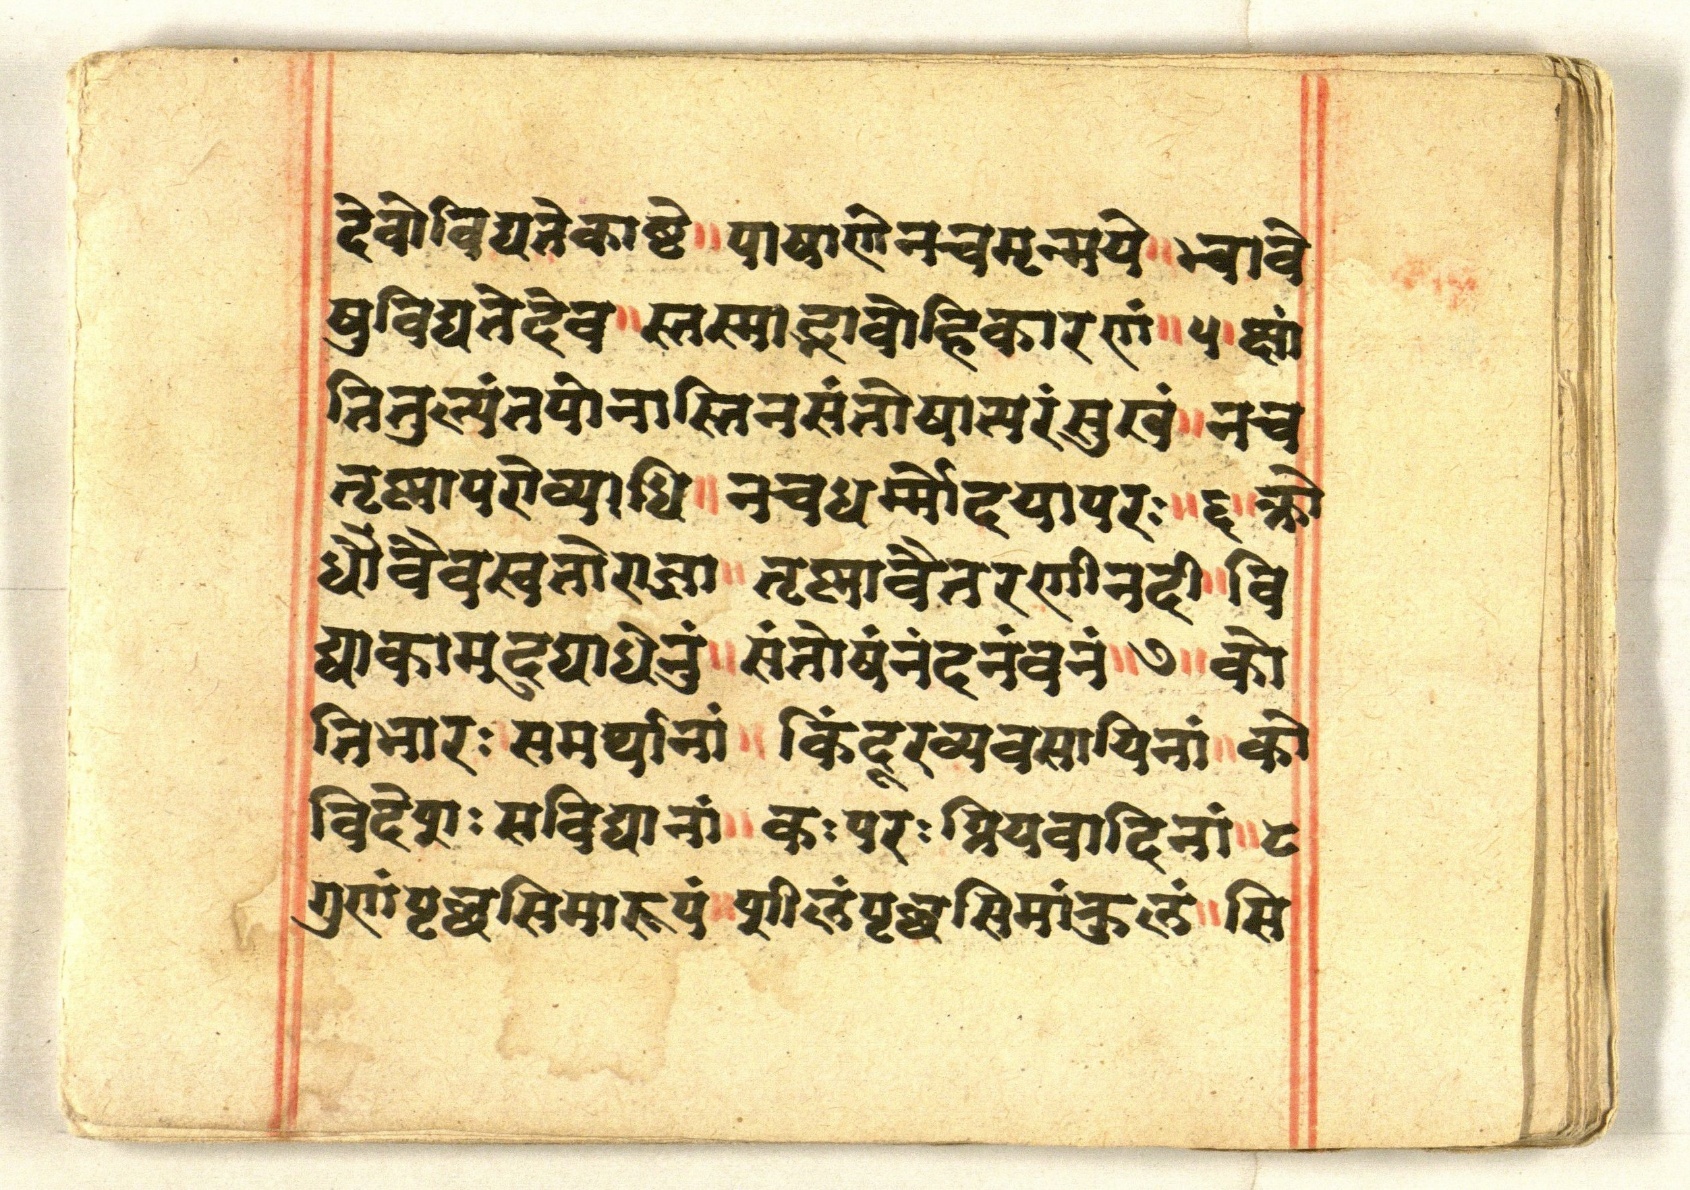 देवोविद्यतेकाष्टे॥पाषाणेनचमृन्मये॥भावे
षुविद्यतेदेव॥स्तस्माद्भावोहिकारणं॥५॥क्षां
तितुल्यंतपोनास्तिनसंतोषात्परंसुखं॥नच
तृष्णापरोव्याधि॥नचधर्म्मोदयापरः॥६॥क्रो
धोवैवस्वतोराजा॥तृष्णावैतरणीनदी॥वि
द्याकामुदुद्याधेनुं॥संतोषंनंदनंवनं॥७॥को
तिभारः समर्थानां॥किंदूरव्यवसायिनां॥को
विदेशः सविद्यानां॥कःपरःप्रियवादिनां॥८
गुणंपृछसिमारूपं॥शीलंपृछसिमांकुलं॥सि